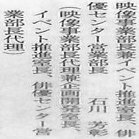 映像事業部長兼イベント推進室長、俳
優センター営業部長　石川　芳彰
(映像事業部長代理兼企画開発室長、
イベント推進室長、俳優センター営
業部長代理)